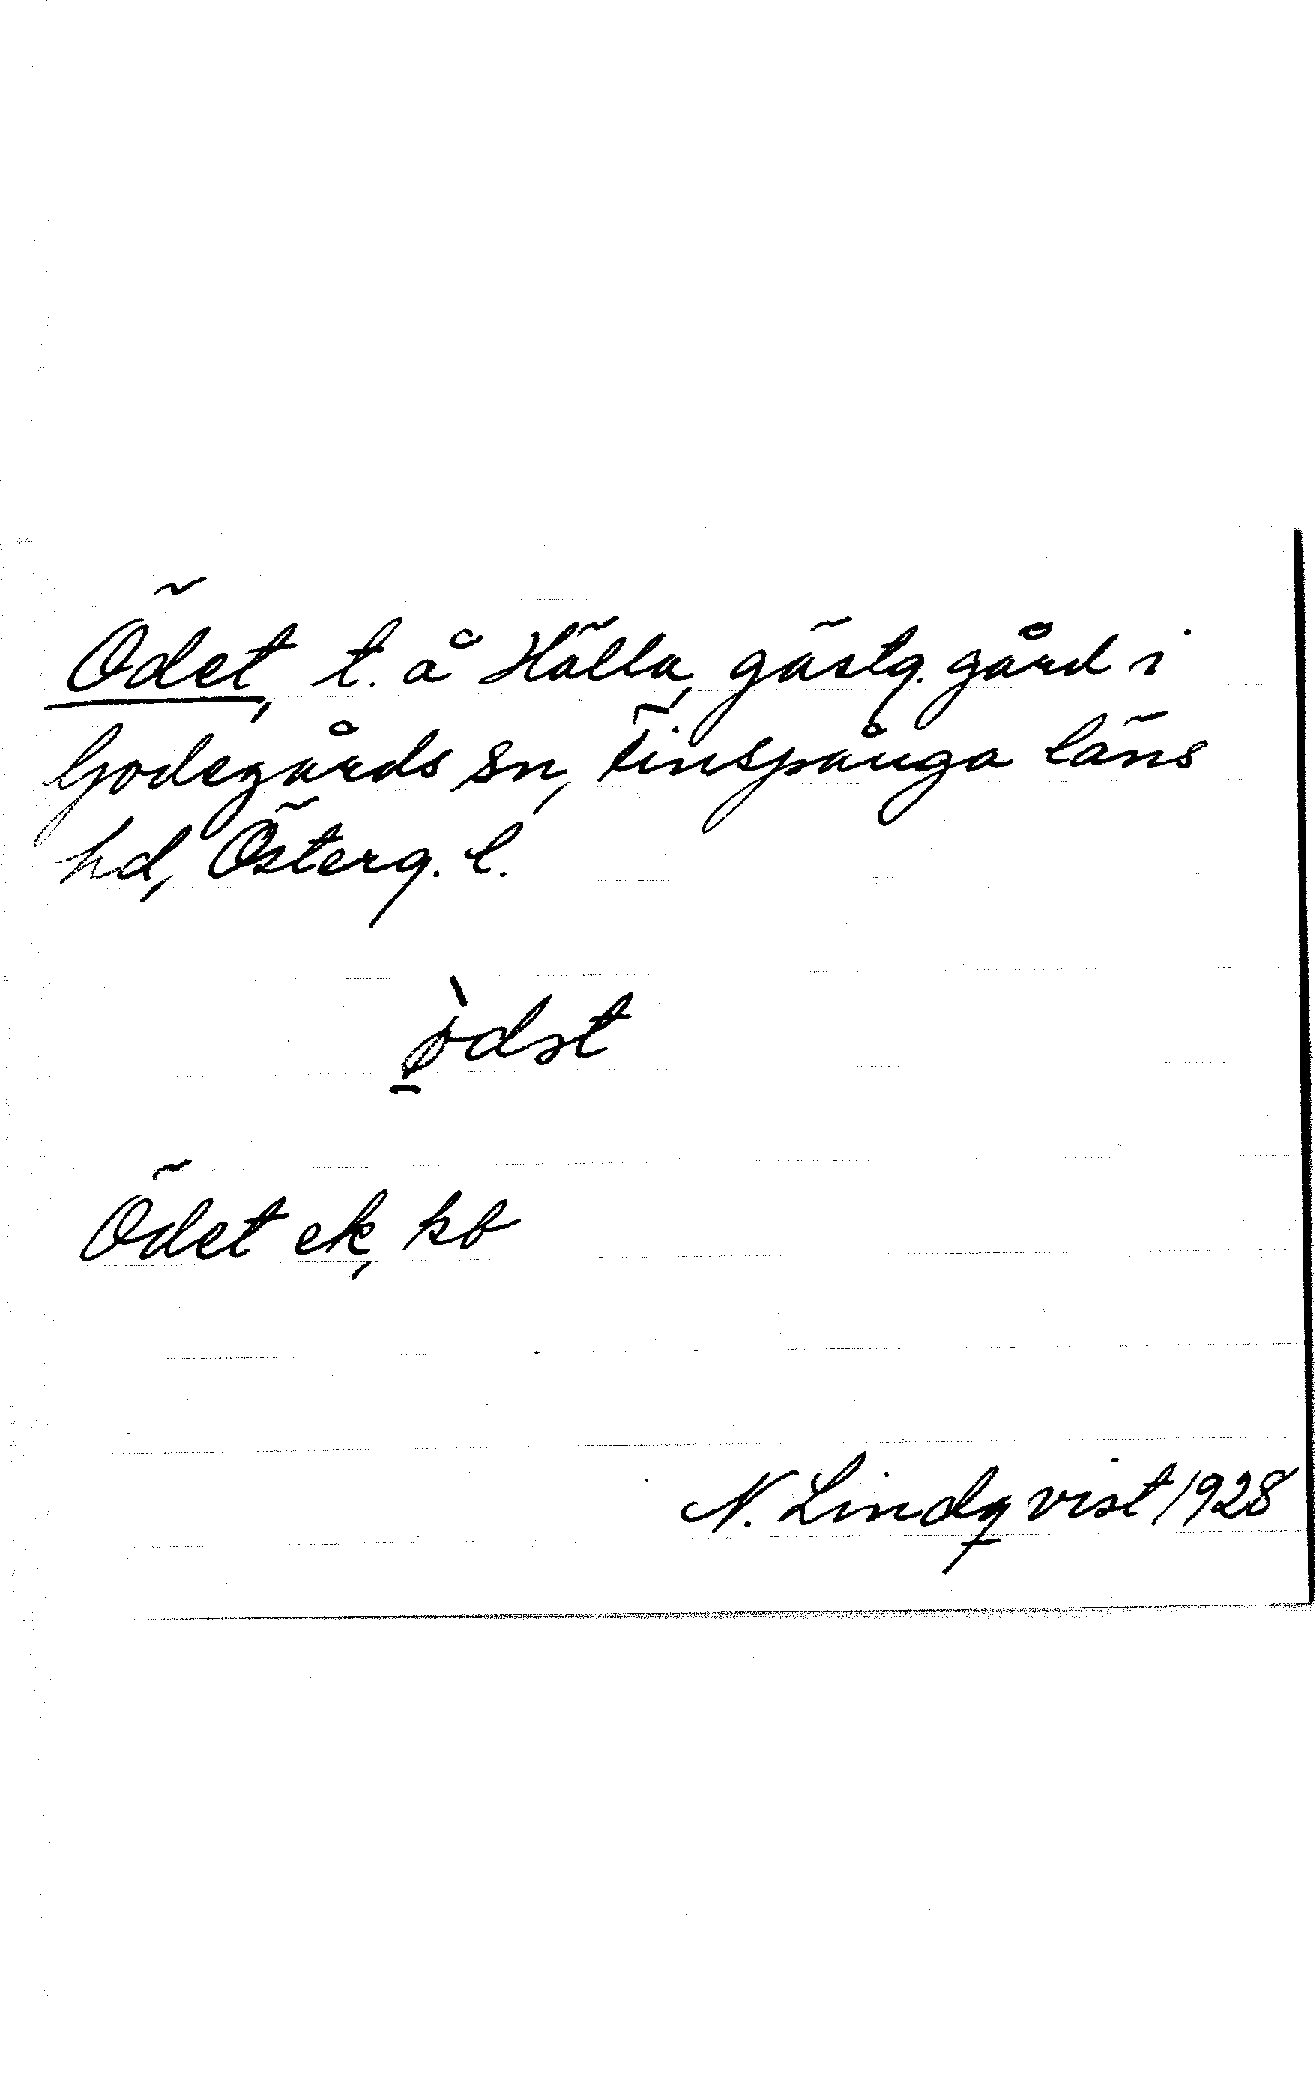 Ödet, t. å Hälla, gästg. gård i
Godegårds sn, Finspånga läns
hd, Österg. l.
ø̀dət
Ödet ek, kb
N. Lindqvist 1928